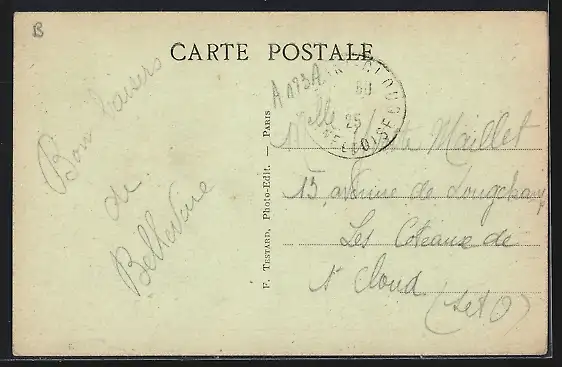 B
CARTE POSTALE
Bons baisers
de
Bellevue
F. TESTARD, Photo-Edit. — PARIS
A 173A
25
SEINE ET OISE
Mlle Maillet
15, avenue de Longchamp
Les Coteaux de
St Cloud
(S et O)